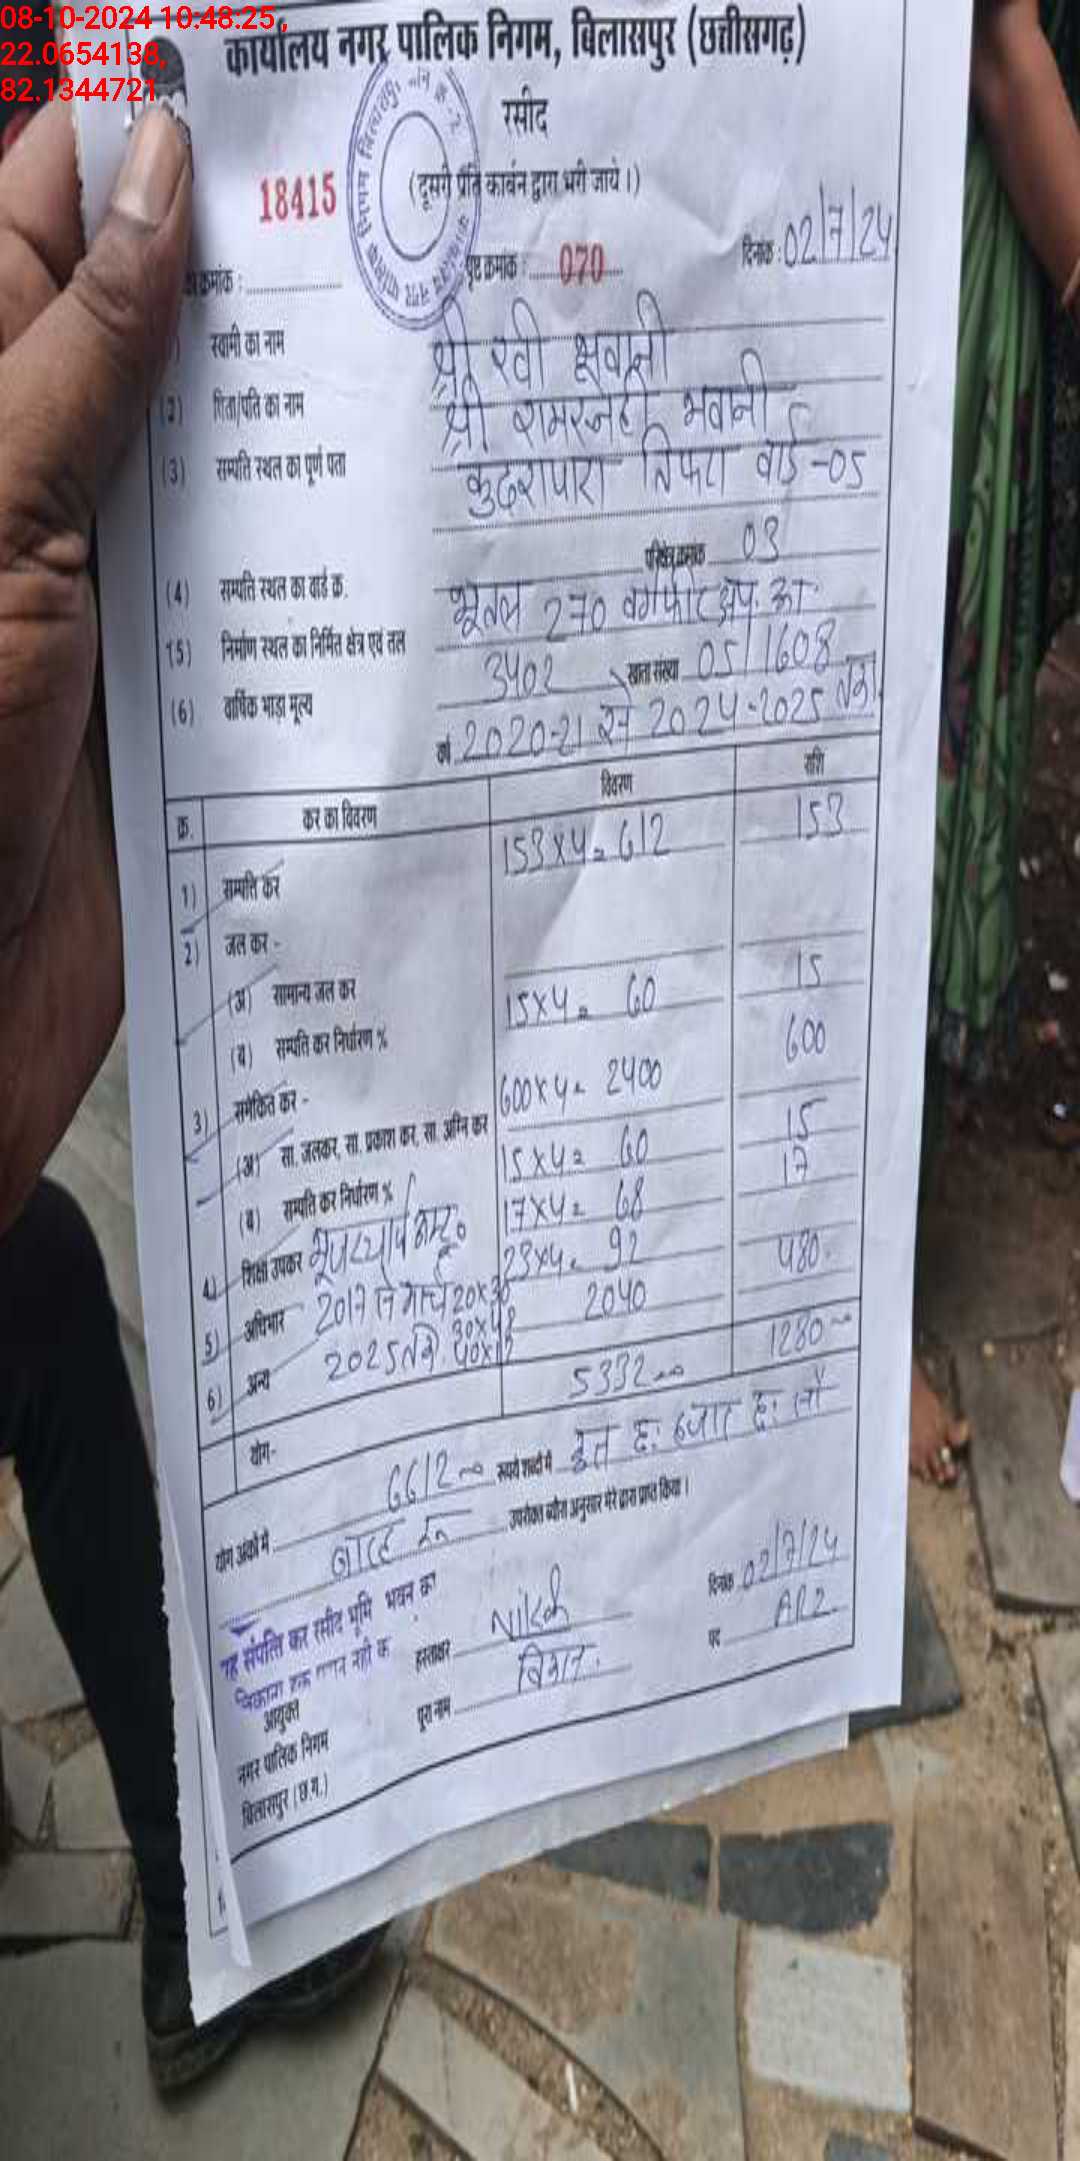 08-10-2024 10:48:25,
22.0654138,
82.1344721
कार्यालय नगर पालिक निगम, बिलासपुर (छत्तीसगढ़)
रसीद
(दूसरी प्रति कार्बन द्वारा भरी जाये।)
18415
क्रमांक : पृष्ठ क्रमांक : 070 दिनांक : 02/7/24
स्वामी का नाम श्री रवी भवानी
(2) पिता/पति का नाम श्री रामस्नेही भवानी
(3) सम्पति स्थल का पूर्ण पता कुदरापारा तिफरा वार्ड-05
(4) सम्पति स्थल का वार्ड क्र. परिक्षेत्र क्रमांक 03
(5) निर्माण स्थल का निर्मित क्षेत्र एवं तल भूतल 270 वर्गफीट
(6) वार्षिक भाड़ा मूल्य 3402 खाता संख्या 05/1608
वर्ष 2020-21 से 2024-2025 तक
क्र. कर का विवरण विवरण राशि
1) सम्पति कर 153x4= 612 153
2) जल कर -
(अ) सामान्य जल कर
(ब) सम्पति कर निर्धारण % 15x4= 60 15
3) समेकित कर - 600x4= 2400 600
(अ) सा. जलकर, सा. प्रकाश कर, सा. अग्नि कर
(ब) सम्पति कर निर्धारण % 15x4= 60 15
4) शिक्षा उपकर 17x4= 68 17
5) अधिभार 2017 से मार्च 20x36 23x4= 92
30x48 2040 480
6) अन्य 2025 तक 40x12
योग- 5332 1280
योग अंकों में 6612 रूपये शब्दों में छः हजार छः सौ
बारह रू उपरोक्त ब्यौरा अनुसार मेरे द्वारा प्राप्त किया।
यह संपत्ति कर रसीद भूमि भवन का
हस्ताक्षर दिनांक 02/7/24
पूरा नाम पद AR2
आयुक्त
नगर पालिक निगम
बिलासपुर (छ.ग.)